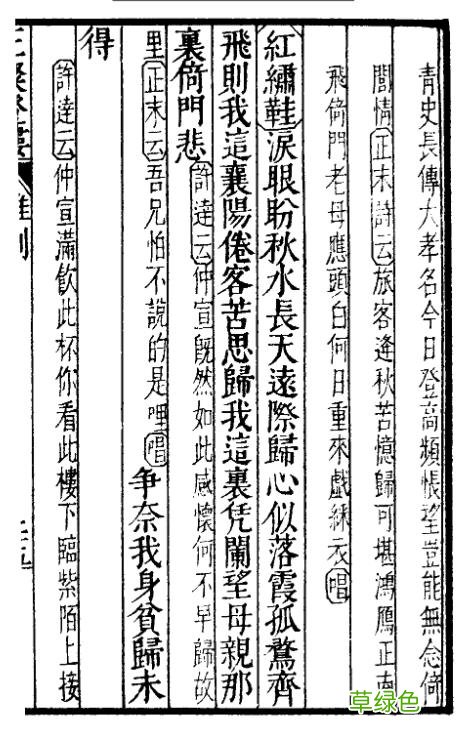 青史長傳大孝名今日登高頻悵望豈能無念倚
閭情正末詩云旅客逢秋苦憶歸可堪鴻鴈正南
飛倚門老母應頭白何日重來戲綵衣唱
紅繡鞋淚眼盼秋水長天遠際歸心似落霞孤鶩齊
飛則我這襄陽倦客苦思歸我這裏凭闌望母親那
裏倚門悲許達云仲宣旣然如此感懷何不早歸故
里正末云吾兄怕不說的是哩唱争奈我身貧歸未
得
許達云仲宣滿飲此杯你看此樓下臨紫陌上接
草绿色